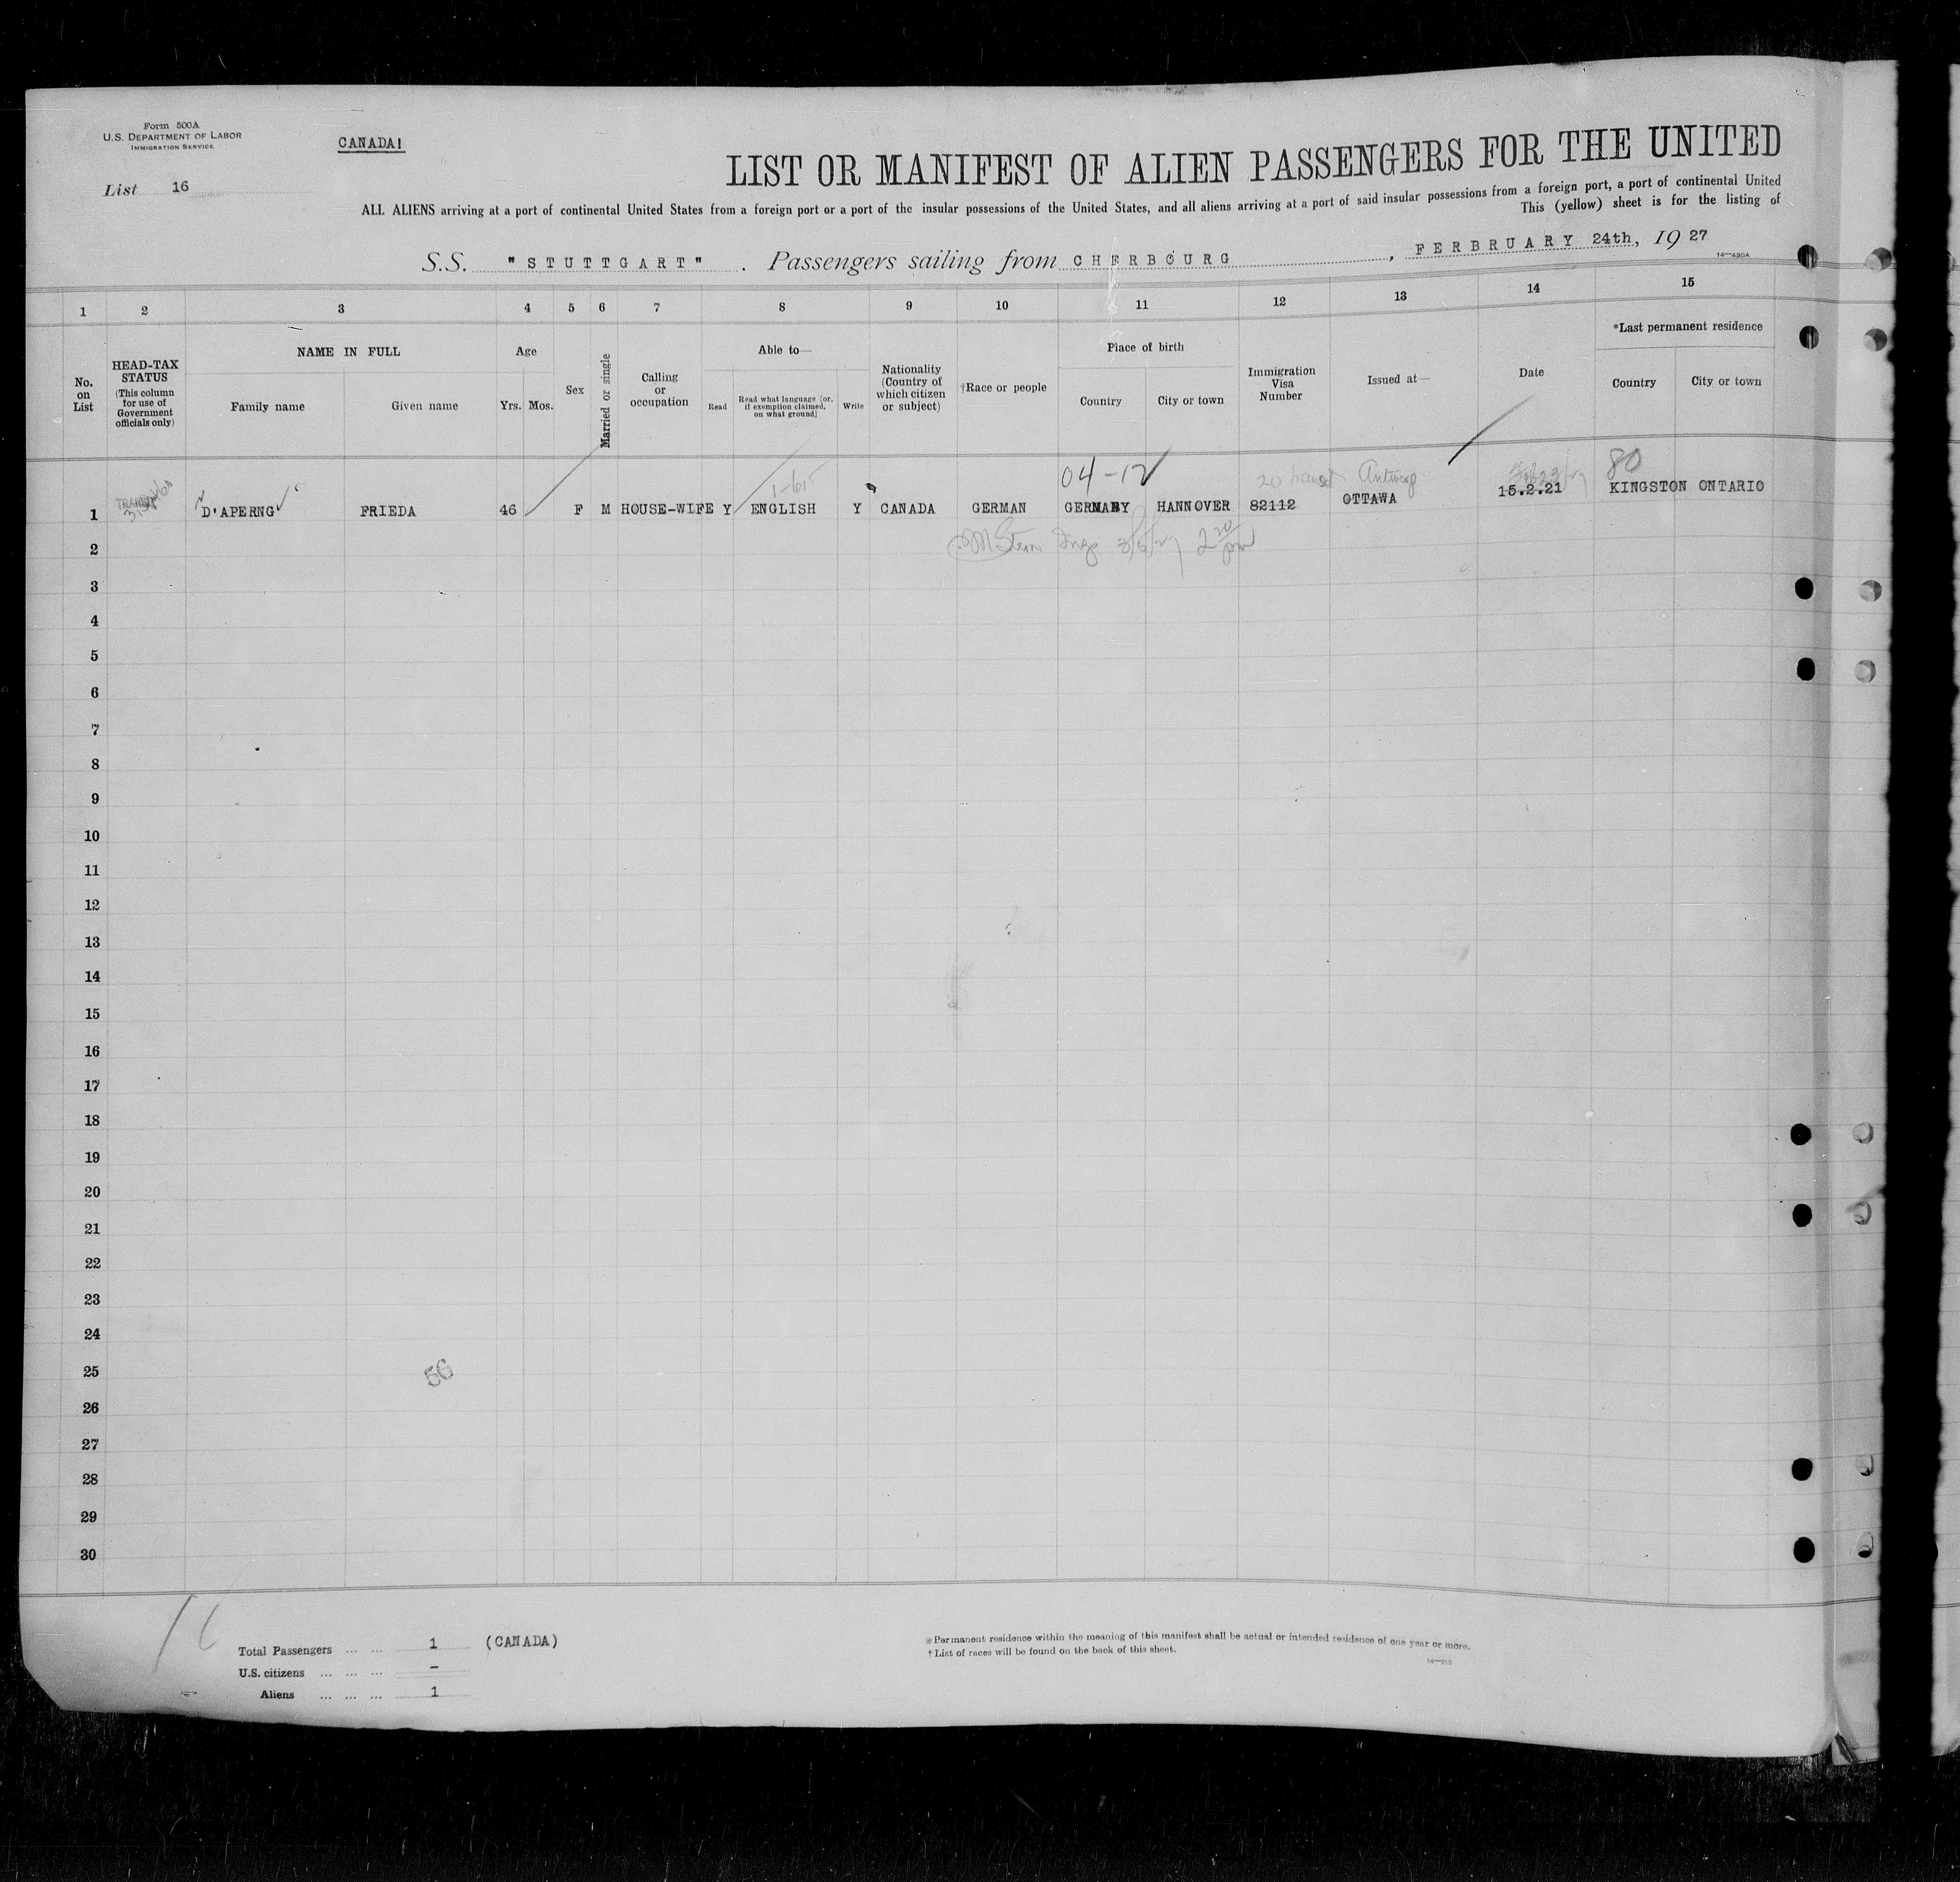 Form 500A
U.S. DEPARTMENT OF LABOR
IMMIGRATION SERVICE
CANADA!
List 16
LIST OR MANIFEST OF ALIEN PASSENGERS FOR THE UNITED
ALL ALIENS arriving at a port of continental United States from a foreign port or a port of the insular possessions of the United States, and all aliens arriving at a port of said insular possessions from a foreign port, a port of continental United
This (yellow) sheet is for the listing of
S.S. "STUTTGART". Passengers sailing from CHERBOURG, FERBRUARY 24th, 1927
14—430A
1 2 3 4 5 6 7 8 9 10 11 12 13 14 15
No. on List
HEAD-TAX STATUS
(This column for use of Government officials only)
NAME IN FULL
Family name
Given name
Age
Yrs. Mos.
Sex
Married or single
Calling or occupation
Able to—
Read
Read what language [or, if exemption claimed, on what ground]
Write
Nationality (Country of which citizen or subject)
†Race or people
Place of birth
Country
City or town
Immigration Visa Number
Issued at—
Date
*Last permanent residence
Country
City or town
04-12 80
TRANSIT
1 D'APERNG FRIEDA 46 F M HOUSE-WIFE Y ENGLISH Y CANADA GERMAN GERMANY HANNOVER 82112 OTTAWA 15.2.21 KINGSTON ONTARIO
2
3
4
5
6
7
8
9
10
11
12
13
14
15
16
17
18
19
20
21
22
23
24
25
56
26
27
28
29
30
Total Passengers ... ... 1 (CANADA)
U.S. citizens ... ... ... –
Aliens ... ... ... 1
* Permanent residence within the meaning of this manifest shall be actual or intended residence of one year or more.
† List of races will be found on the back of this sheet.